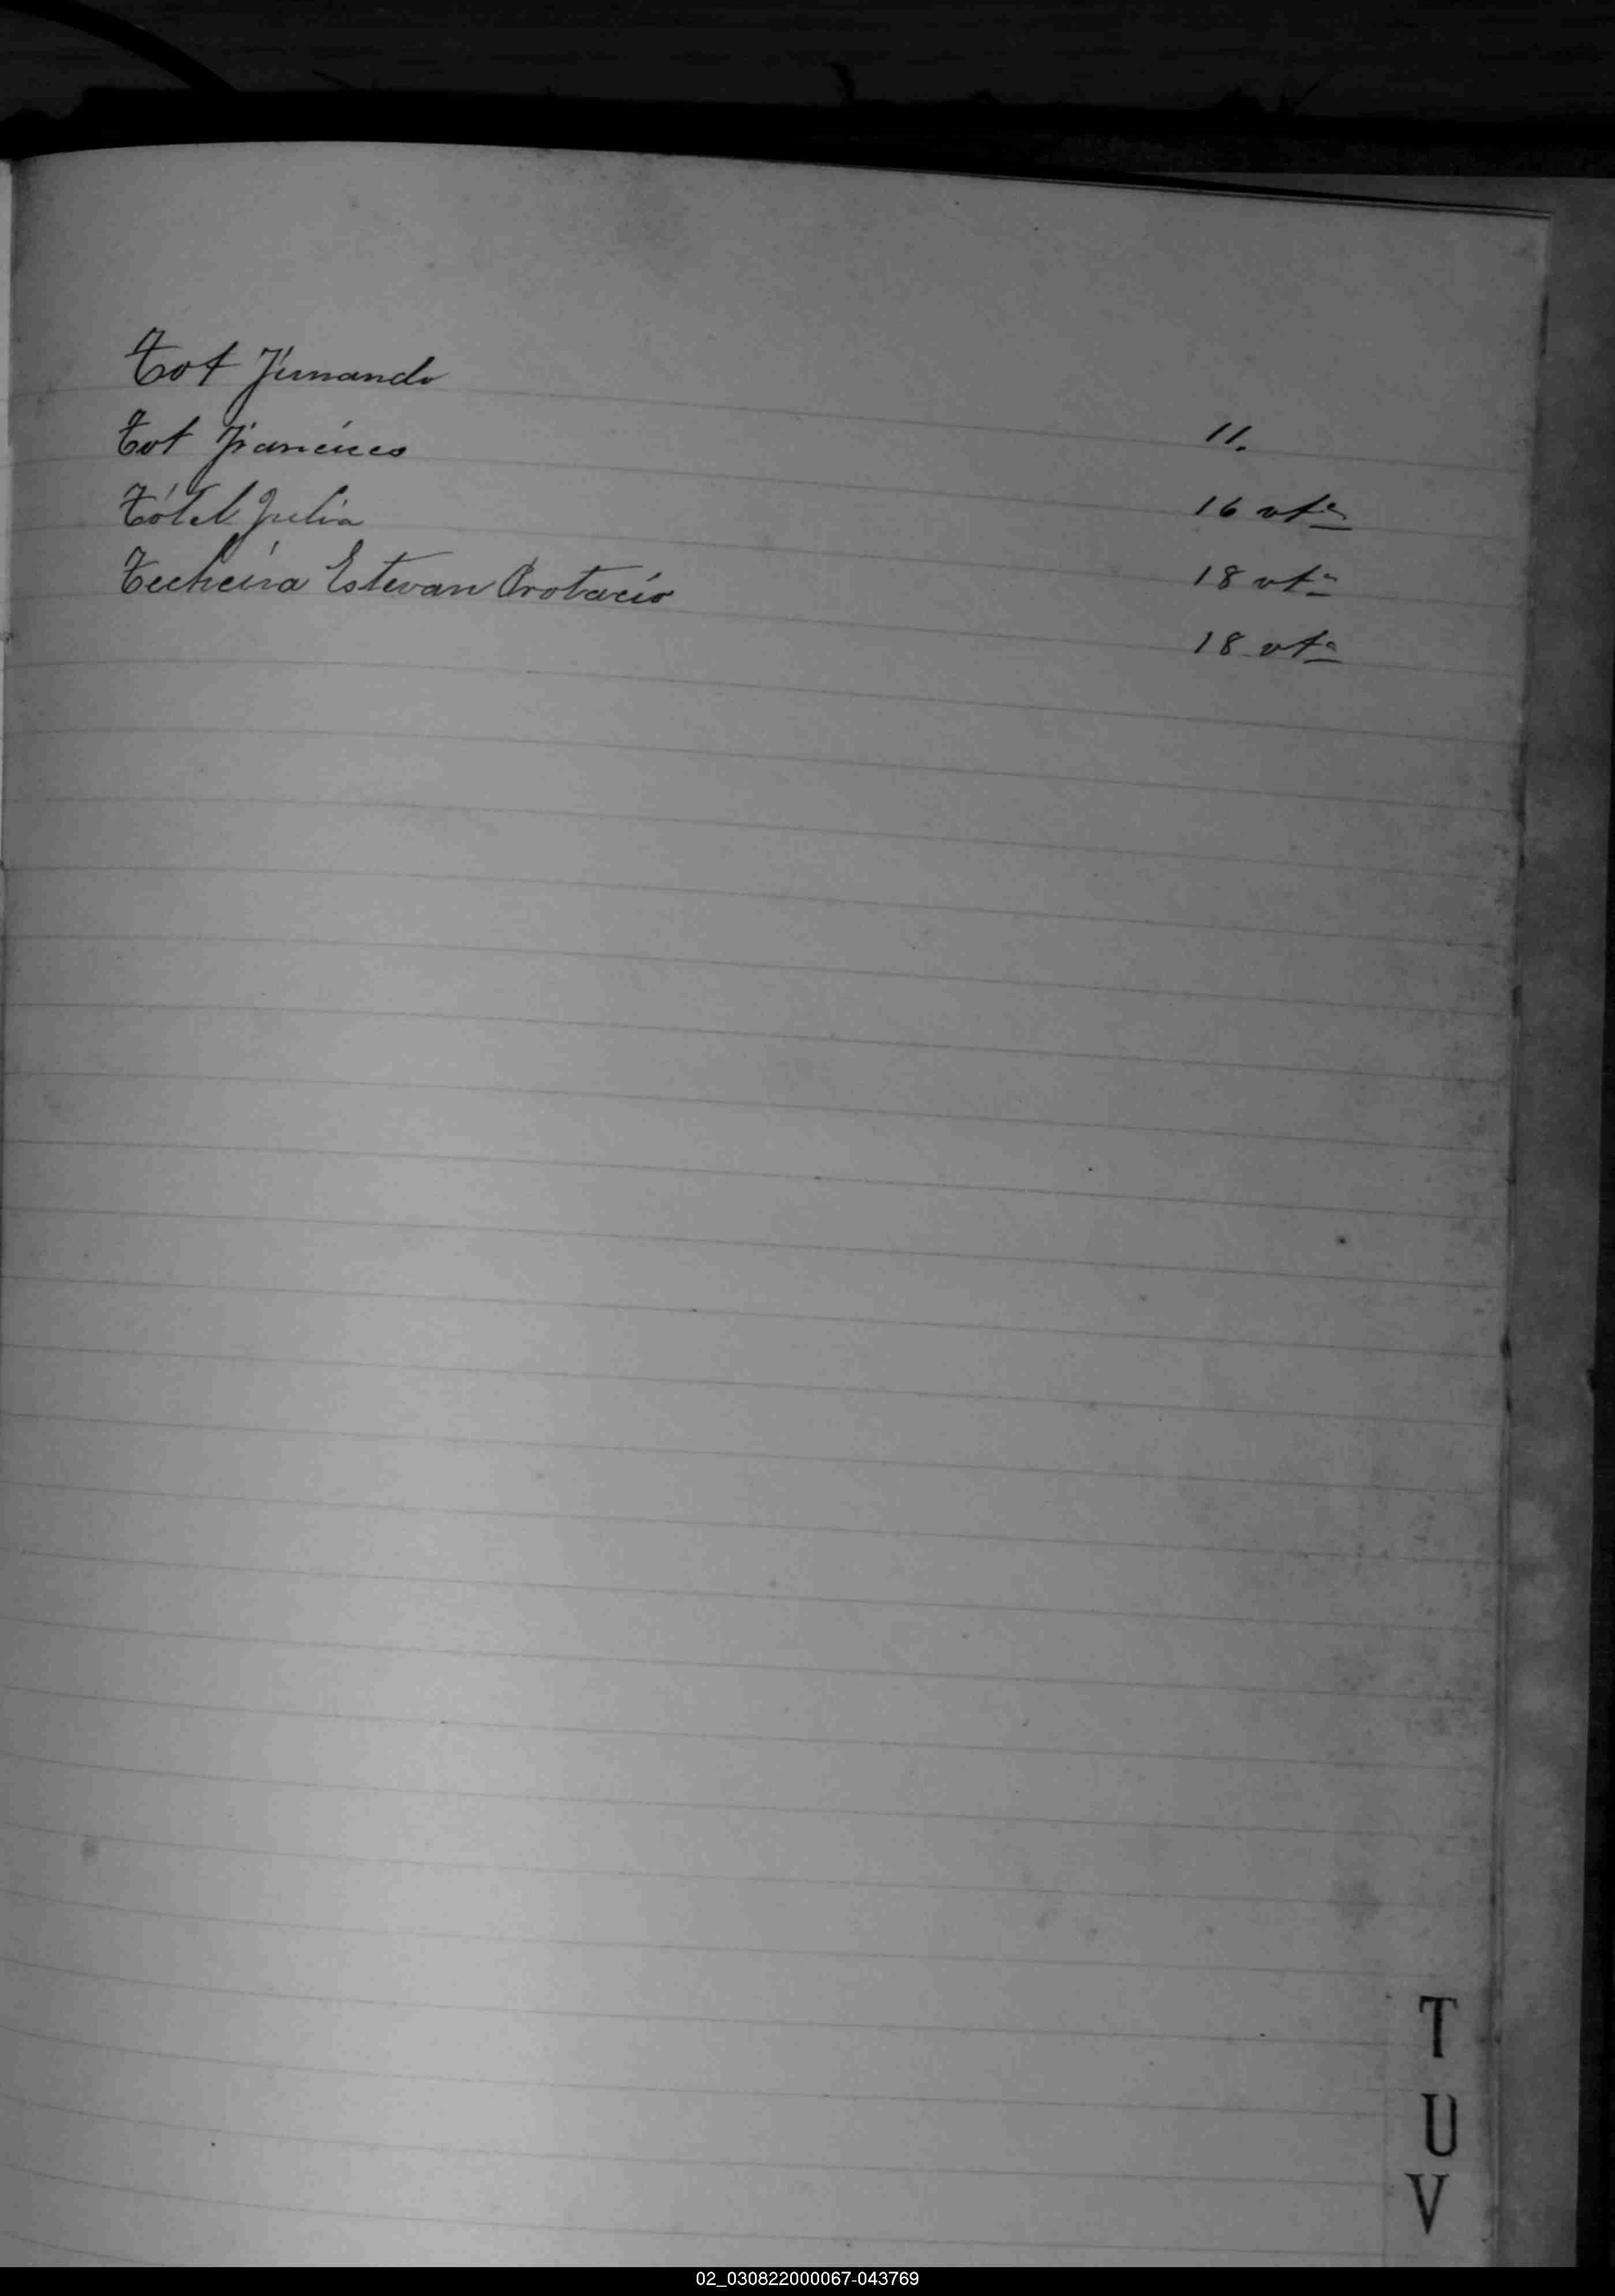 Tot Fernando 11.
Tot Francisco 16 vta
Tótel Julia 18 vta
Techeira Estevan Protacio 18 vta
T
U
V
02_030822000067-043769